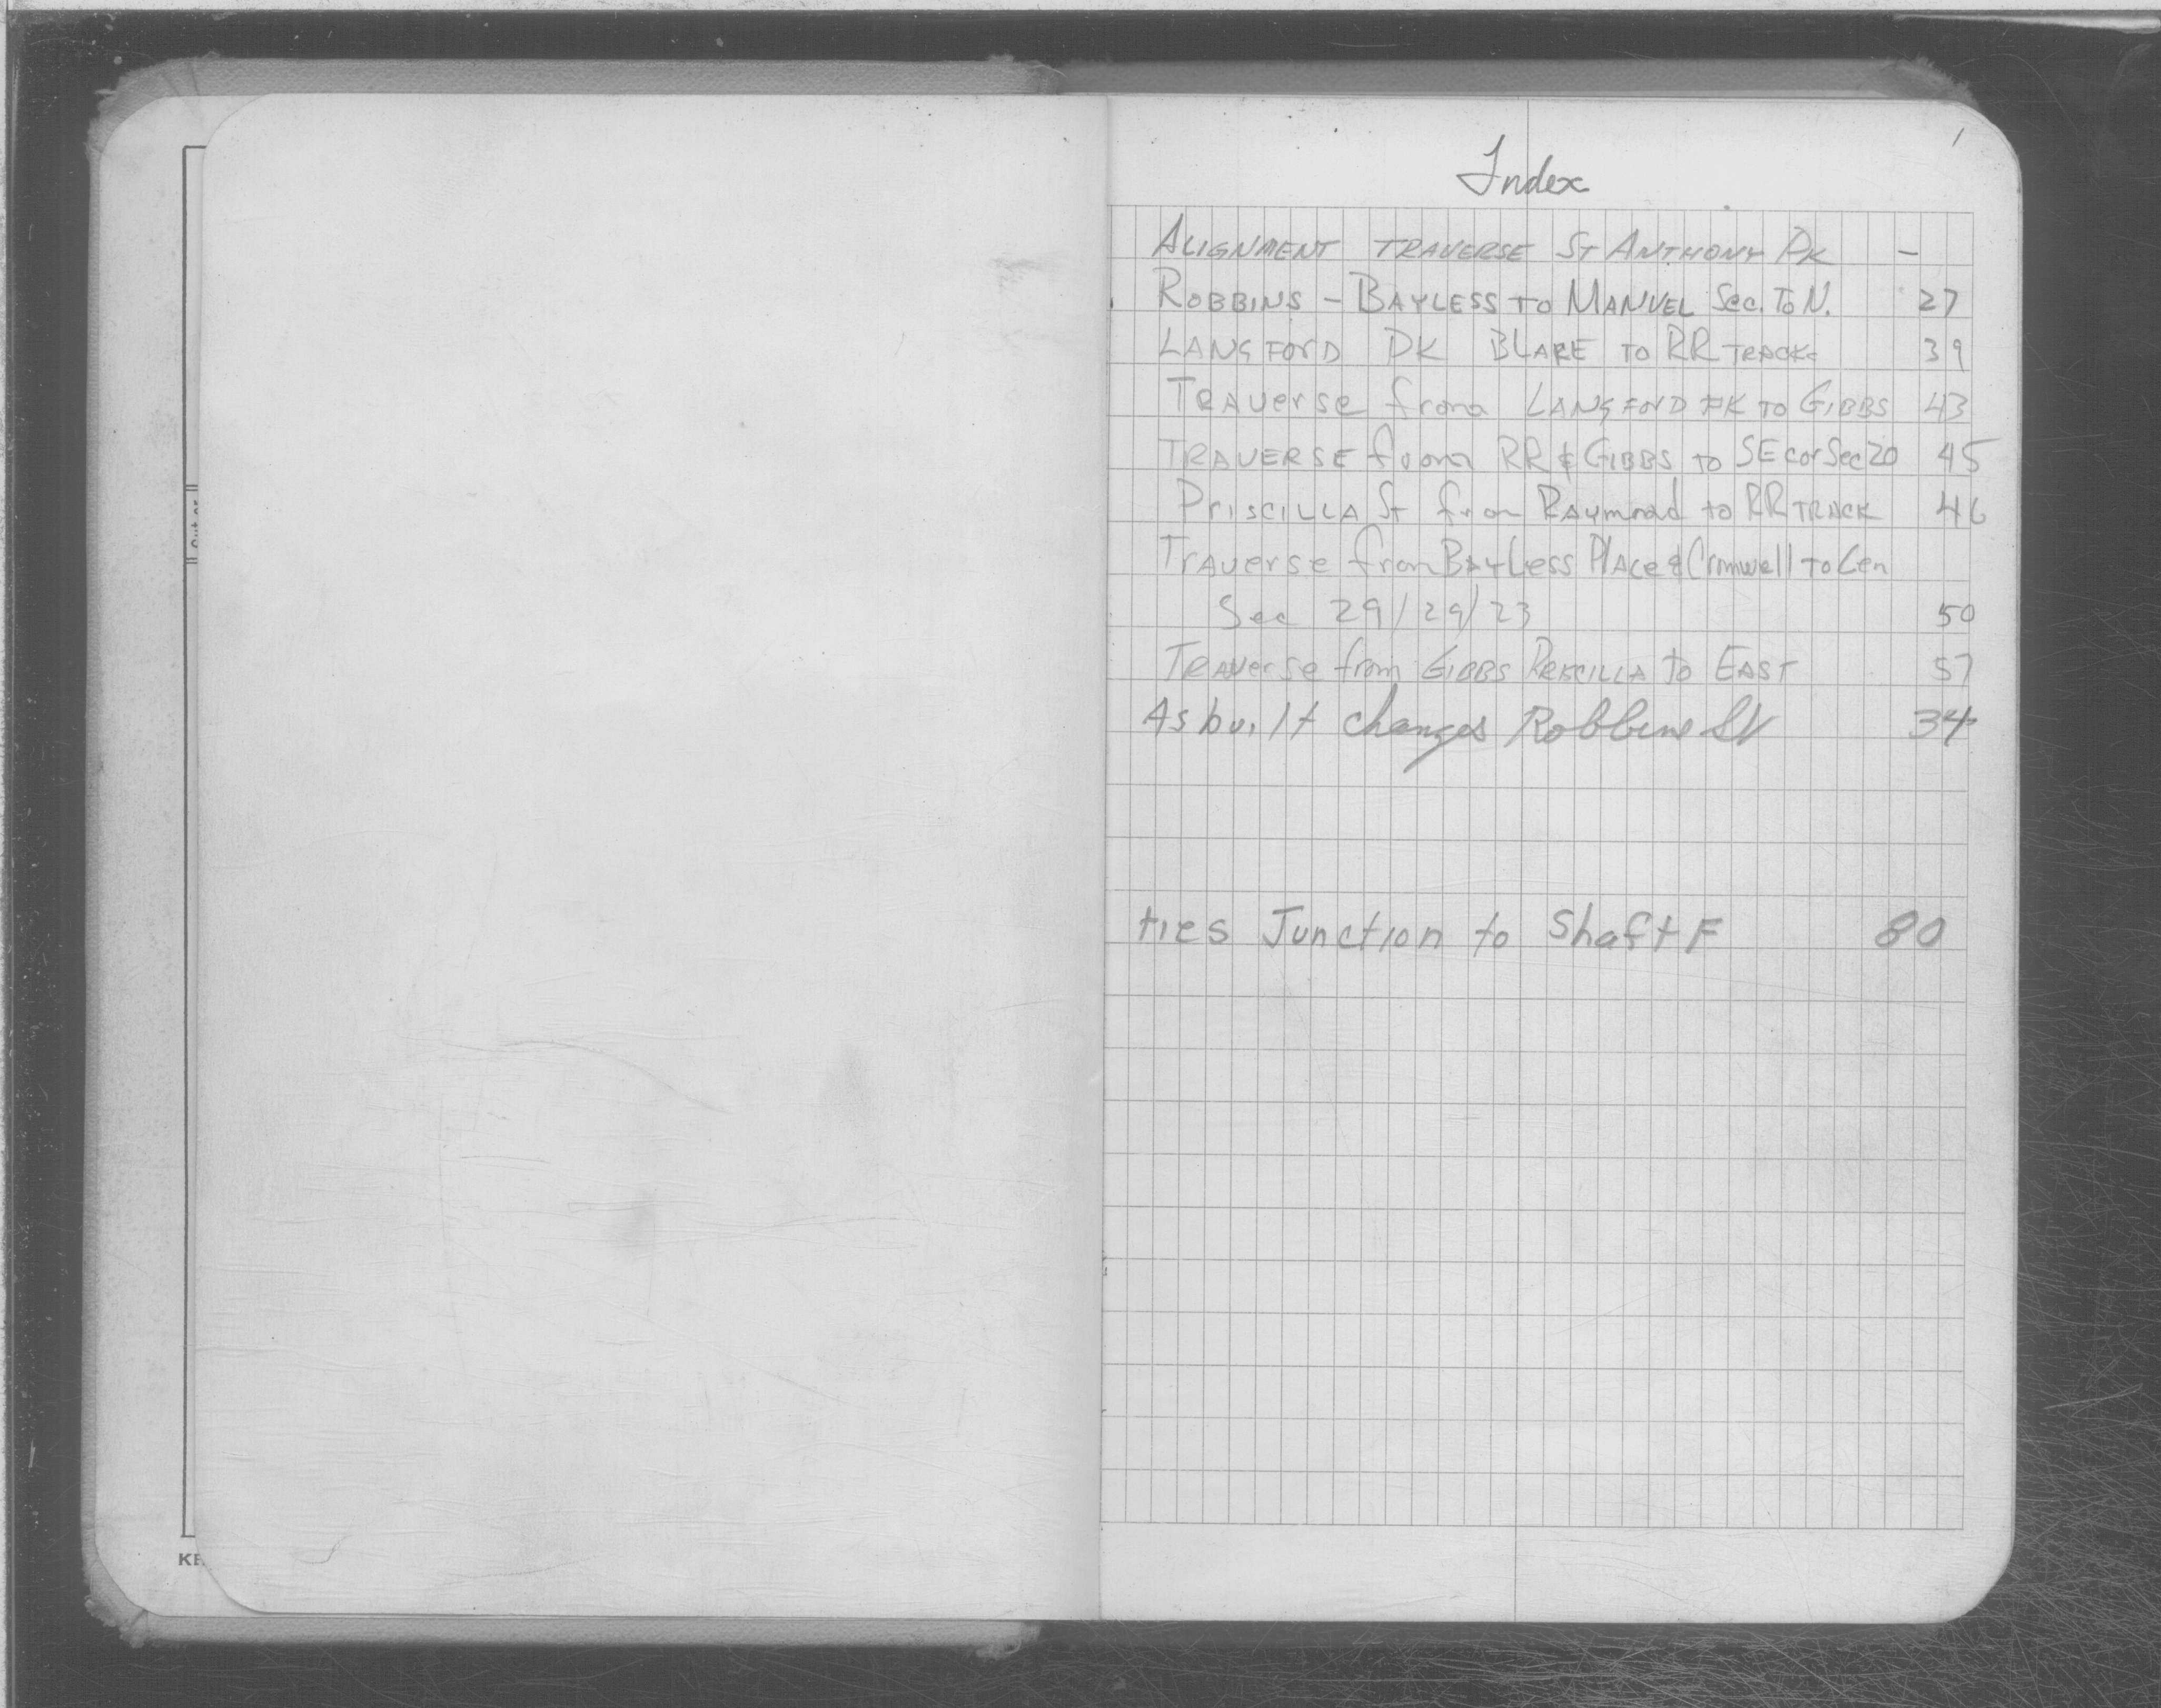 1
Index
ALIGNMENT TRAVERSE ST ANTHONY PK -
ROBBINS - BAYLESS TO MANVEL Sec. To N. 27
LANGFORD PK BLAKE TO RR TRACKS 39
TRAVerse from LANGFORD PK TO GIBBS 43
TRAVERSE from RR & GIBBS TO SE cor Sec 20 45
PrISCILLA St from RAYmond to RR TRACK 46
TrAVerse from BAYLess PlAce & Cromwell To Cen
Sec 29/29/23 50
TRAVerse from GIBBS PRISCILLA to EAST 57
As built changes Robbins St 34
ties Junction to Shaft F 80
KE